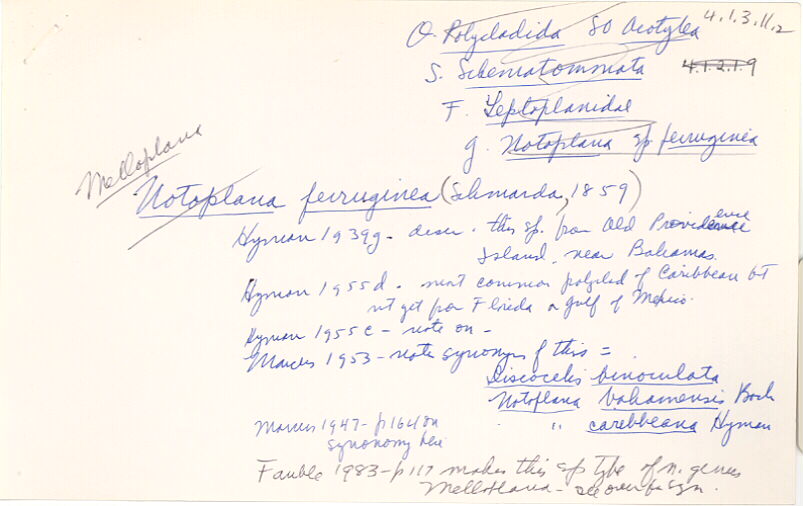 O. Polycladida SO Acotylea 4.1.3.11.2
S. Schematommata 4.1.2.1.9
F. Leptoplanidae
g. Notoplana sp. ferruginea
Melloplana
Notoplana ferruginea (Schmarda, 1859)
Hyman 1939g - descr. this sp. from Old Providence
Island, near Bahamas.
Hyman 1955d - most common polyclad of Caribbean bt
nt yet from Florida or Gulf of Mexico.
Hyman 1955c - note on -
Marcus 1953 - note synonyms of this =
Discocelis binoculata
Notoplana bahamensis Bock
" caribbeana Hyman
Marcus 1947 - p164 on
synonomy here
Faubel 1983 - p117 makes this sp type of n. genus
Melloplana - see over for syn.